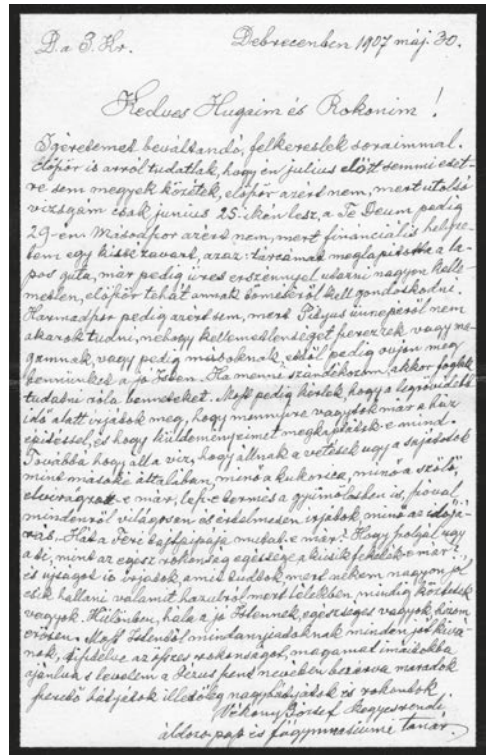 D. a J. Kr. Debrecenben 1907 máj. 30.
Kedves Hugaim és Rokonim!
Igéretemet beváltandó, felkereslek soraimmal.
Először is arról tudatlak, hogy én julius előtt semmi eset-
re sem megyek közétek, először azért nem, mert utolsó
vizsgám csak junius 25-ikén lesz, a Te Deum pedig
29-én. Másodszor azért nem, mert financiális helyze-
tem egy kissé zavart, azaz: tárcámat meglapitotta a la-
pos guta, már pedig üres erszénnyel utazni nagyon kelle-
metlen, először tehát annak töméséről kell gondoskodni.
Harmadszor pedig azért sem, mert ünnepéről nem
akarok tudni, nehogy kellemetlenséget szerezzek vagy ma-
gamnak, vagy pedig másoknak, ettől pedig óvjon meg
bennünket a jó Isten. Ha menni szándékozom, akkor foglak
tudatni róla benneteket. Most pedig kérlek, hogy a legrövidebb
idő alatt irjátok meg, hogy mennyire vagytok már a ház
épitéssel, és hogy küldeményeimet megkaptátok-e mind.
Továbbá hogy áll a viz, hogy állnak a vetések ugy a sajátotok
mint másoké általában, minő a kukorica, minő a szőlő,
elvirágzott-e már, lesz-e termés a gyümölcsben is, szóval
mindenről világosan és értelmesen irjatok, minő az időjá-
rás. Hát a Feri tajtpipája mutat-e már? Hogy szolgál ugy
a ti, mint az egész rokonság egészsége a kicsik feketék-e már?
és ujságot is irjatok, amit tudtok mert nekem nagyon jól
esik hallani valamit hazulról mert lélekben mindig köztetek
vagyok. Különben, hála a jó Istennek, egészséges vagyok
erősen. Most Istentől mindannyiadoknak minden jót kivá-
nok, tisztelve az összes rokonságot, magamat imáitokba
ajánlva s levelem a Jézus szent nevében bezárva maradok
szerető bátyátok illetőleg nagybátyátok és rokontok
Vékony József kegyesrendi
áldozópap és főgymnasiumi tanár.